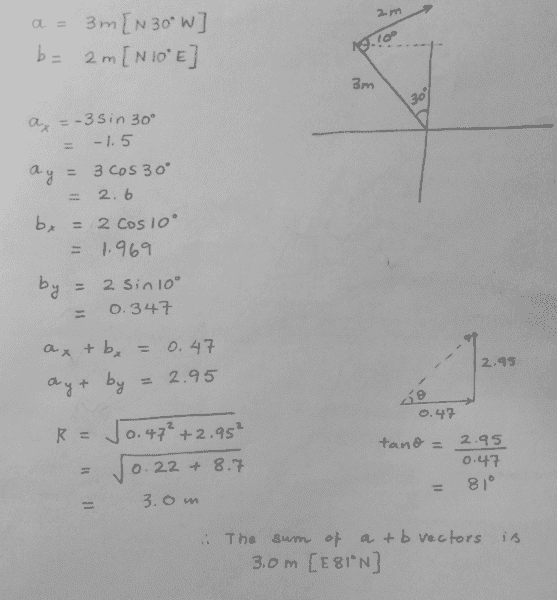 a = 3m [N 30° W]
b = 2m [N 10° E]
2m
10°
3m
30°
ax = -3 Sin 30°
= -1.5
ay = 3 Cos 30°
= 2.6
bx = 2 Cos 10°
= 1.969
by = 2 Sin 10°
= 0.347
ax + bx = 0.47
ay + by = 2.95
R = √0.47² + 2.95²
= √0.22 + 8.7
= 3.0 m
2.95
θ
0.47
tanθ = 2.95
0.47
= 81°
∴ The sum of a + b vectors is
3.0 m [E 81° N]